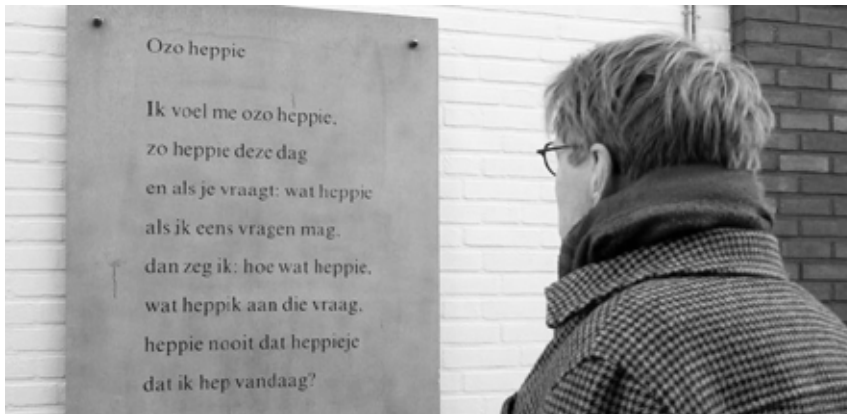 Ozo heppie
Ik voel me ozo heppie,
zo heppie deze dag
en als je vraagt: wat heppie
als ik eens vragen mag,
dan zeg ik: hoe wat heppie,
wat heppik aan die vraag,
heppie nooit dat heppieje
dat ik hep vandaag?